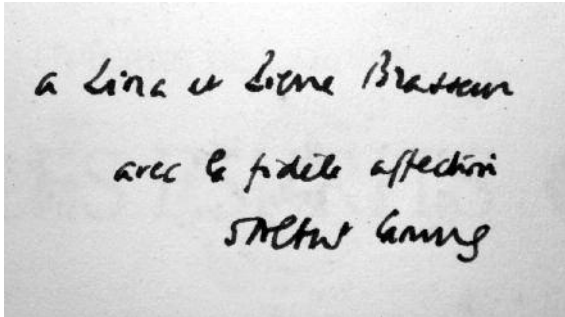 a Lina et Pierre Brasseur
avec la fidèle affection
d'Albert Camus